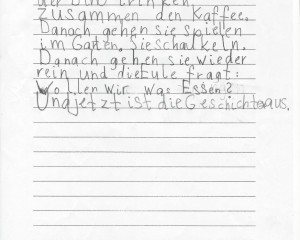 der Bib trinken
zusammen den Kaffee.
Danach gehen sie spielen
im Garten. Sie schaukeln.
Danach gehen sie wieder
rein und die Eule fragt:
Wollen wir was Essen?
Und jetzt ist die Geschichte aus.